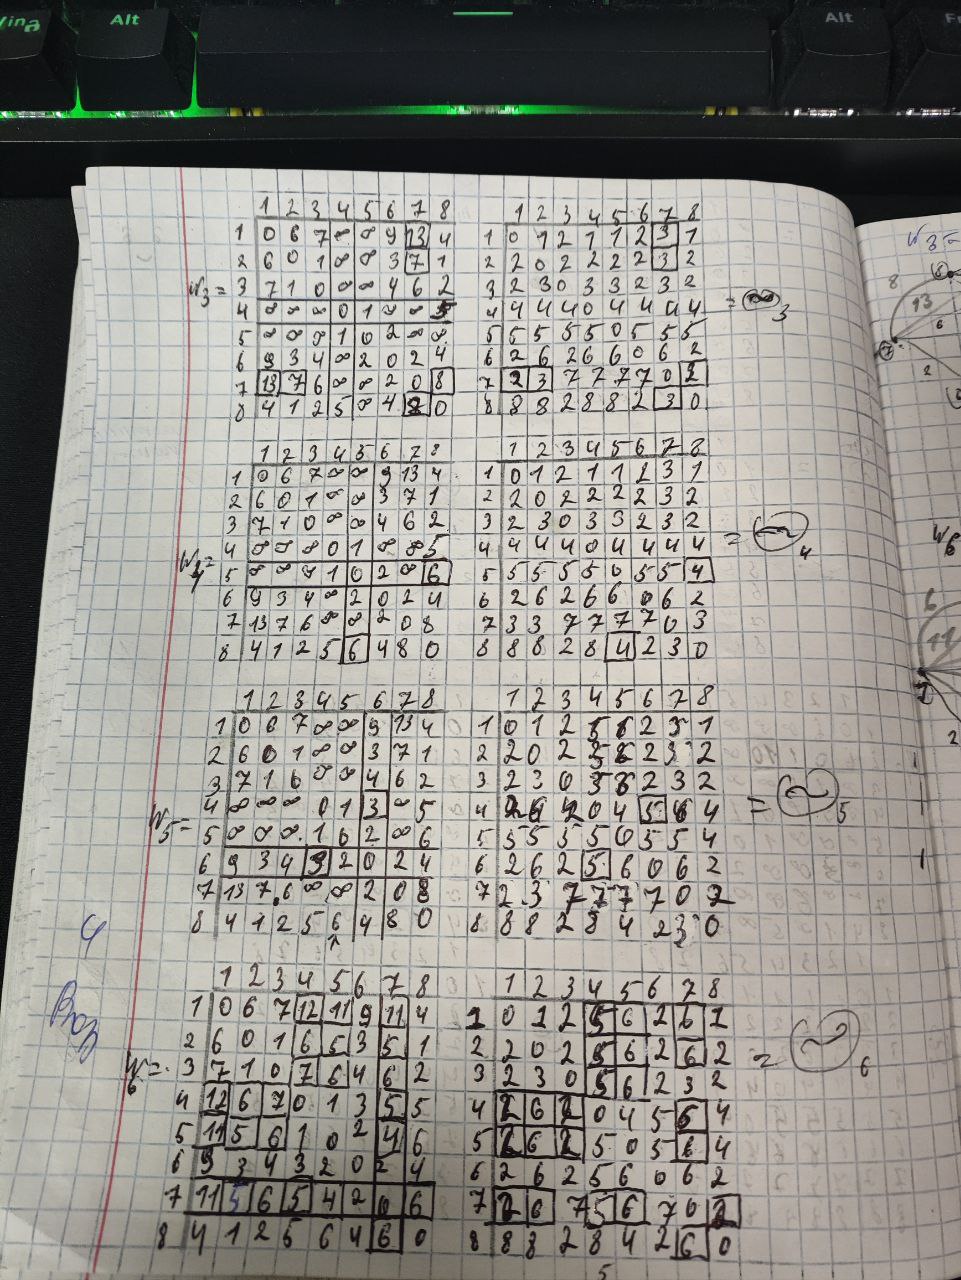 Alt
Alt
1 2 3 4 5 6 7 8
1 0 6 7 ∞ ∞ 9 13 4
2 6 0 1 ∞ ∞ 3 7 1
W3 = 3 7 1 0 ∞ ∞ 4 6 2
4 ∞ ∞ ∞ 0 1 ∞ ∞ 5
5 ∞ ∞ ∞ 1 0 2 ∞ ∞
6 9 3 4 ∞ 2 0 2 4
7 13 7 6 ∞ ∞ 2 0 8
8 4 1 2 5 ∞ 4 8 0
1 2 3 4 5 6 7 8
1 0 1 2 1 1 2 3 1
2 2 0 2 2 2 2 3 2
3 2 3 0 3 3 2 3 2
4 4 4 4 0 4 4 4 4
5 5 5 5 5 0 5 5 5
6 2 6 2 6 6 0 6 2
7 2 3 7 7 7 7 0 2
8 8 8 2 8 8 2 3 0
= 3
1 2 3 4 5 6 7 8
1 0 6 7 ∞ ∞ 9 13 4
2 6 0 1 ∞ ∞ 3 7 1
3 7 1 0 ∞ ∞ 4 6 2
4 ∞ ∞ ∞ 0 1 ∞ ∞ 5
W4 = 5 ∞ ∞ ∞ 1 0 2 ∞ 6
6 9 3 4 ∞ 2 0 2 4
7 13 7 6 ∞ ∞ 2 0 8
8 4 1 2 5 6 4 8 0
1 2 3 4 5 6 7 8
1 0 1 2 1 1 2 3 1
2 2 0 2 2 2 2 3 2
3 2 3 0 3 3 2 3 2
4 4 4 4 0 4 4 4 4
5 5 5 5 5 0 5 5 4
6 2 6 2 6 6 0 6 2
7 3 3 7 7 7 7 0 3
8 8 8 2 8 4 2 3 0
= 4
1 2 3 4 5 6 7 8
1 0 6 7 ∞ ∞ 9 13 4
2 6 0 1 ∞ ∞ 3 7 1
3 7 1 0 ∞ ∞ 4 6 2
W5 = 4 ∞ ∞ ∞ 0 1 3 ∞ 5
5 ∞ ∞ ∞ 1 0 2 ∞ 6
6 9 3 4 3 2 0 2 4
7 13 7 6 ∞ ∞ 2 0 8
8 4 1 2 5 6 4 8 0
1 2 3 4 5 6 7 8
1 0 1 2 5 6 2 3 1
2 2 0 2 5 6 2 3 2
3 2 3 0 5 6 2 3 2
4 2 6 2 0 4 5 6 4
5 5 5 5 5 0 5 5 4
6 2 6 2 5 6 0 6 2
7 2 3 7 7 7 7 0 2
8 8 8 2 8 4 2 3 0
= 5
1 2 3 4 5 6 7 8
1 0 6 7 12 11 9 11 4
2 6 0 1 6 5 3 5 1
W6 = 3 7 1 0 7 6 4 6 2
4 12 6 7 0 1 3 5 5
5 11 5 6 1 0 2 4 6
6 9 3 4 3 2 0 2 4
7 11 5 6 5 4 2 0 6
8 4 1 2 5 6 4 6 0
1 2 3 4 5 6 7 8
1 0 1 2 5 6 2 6 1
2 2 0 2 5 6 2 6 2
3 2 3 0 5 6 2 3 2
4 2 6 2 0 4 5 6 4
5 2 6 2 5 0 5 6 4
6 2 6 2 5 6 0 6 2
7 2 6 7 5 6 7 0 2
8 8 8 2 8 4 2 6 0
= 6
W3=
8
13
6
7
2
W6
6
11
7
2